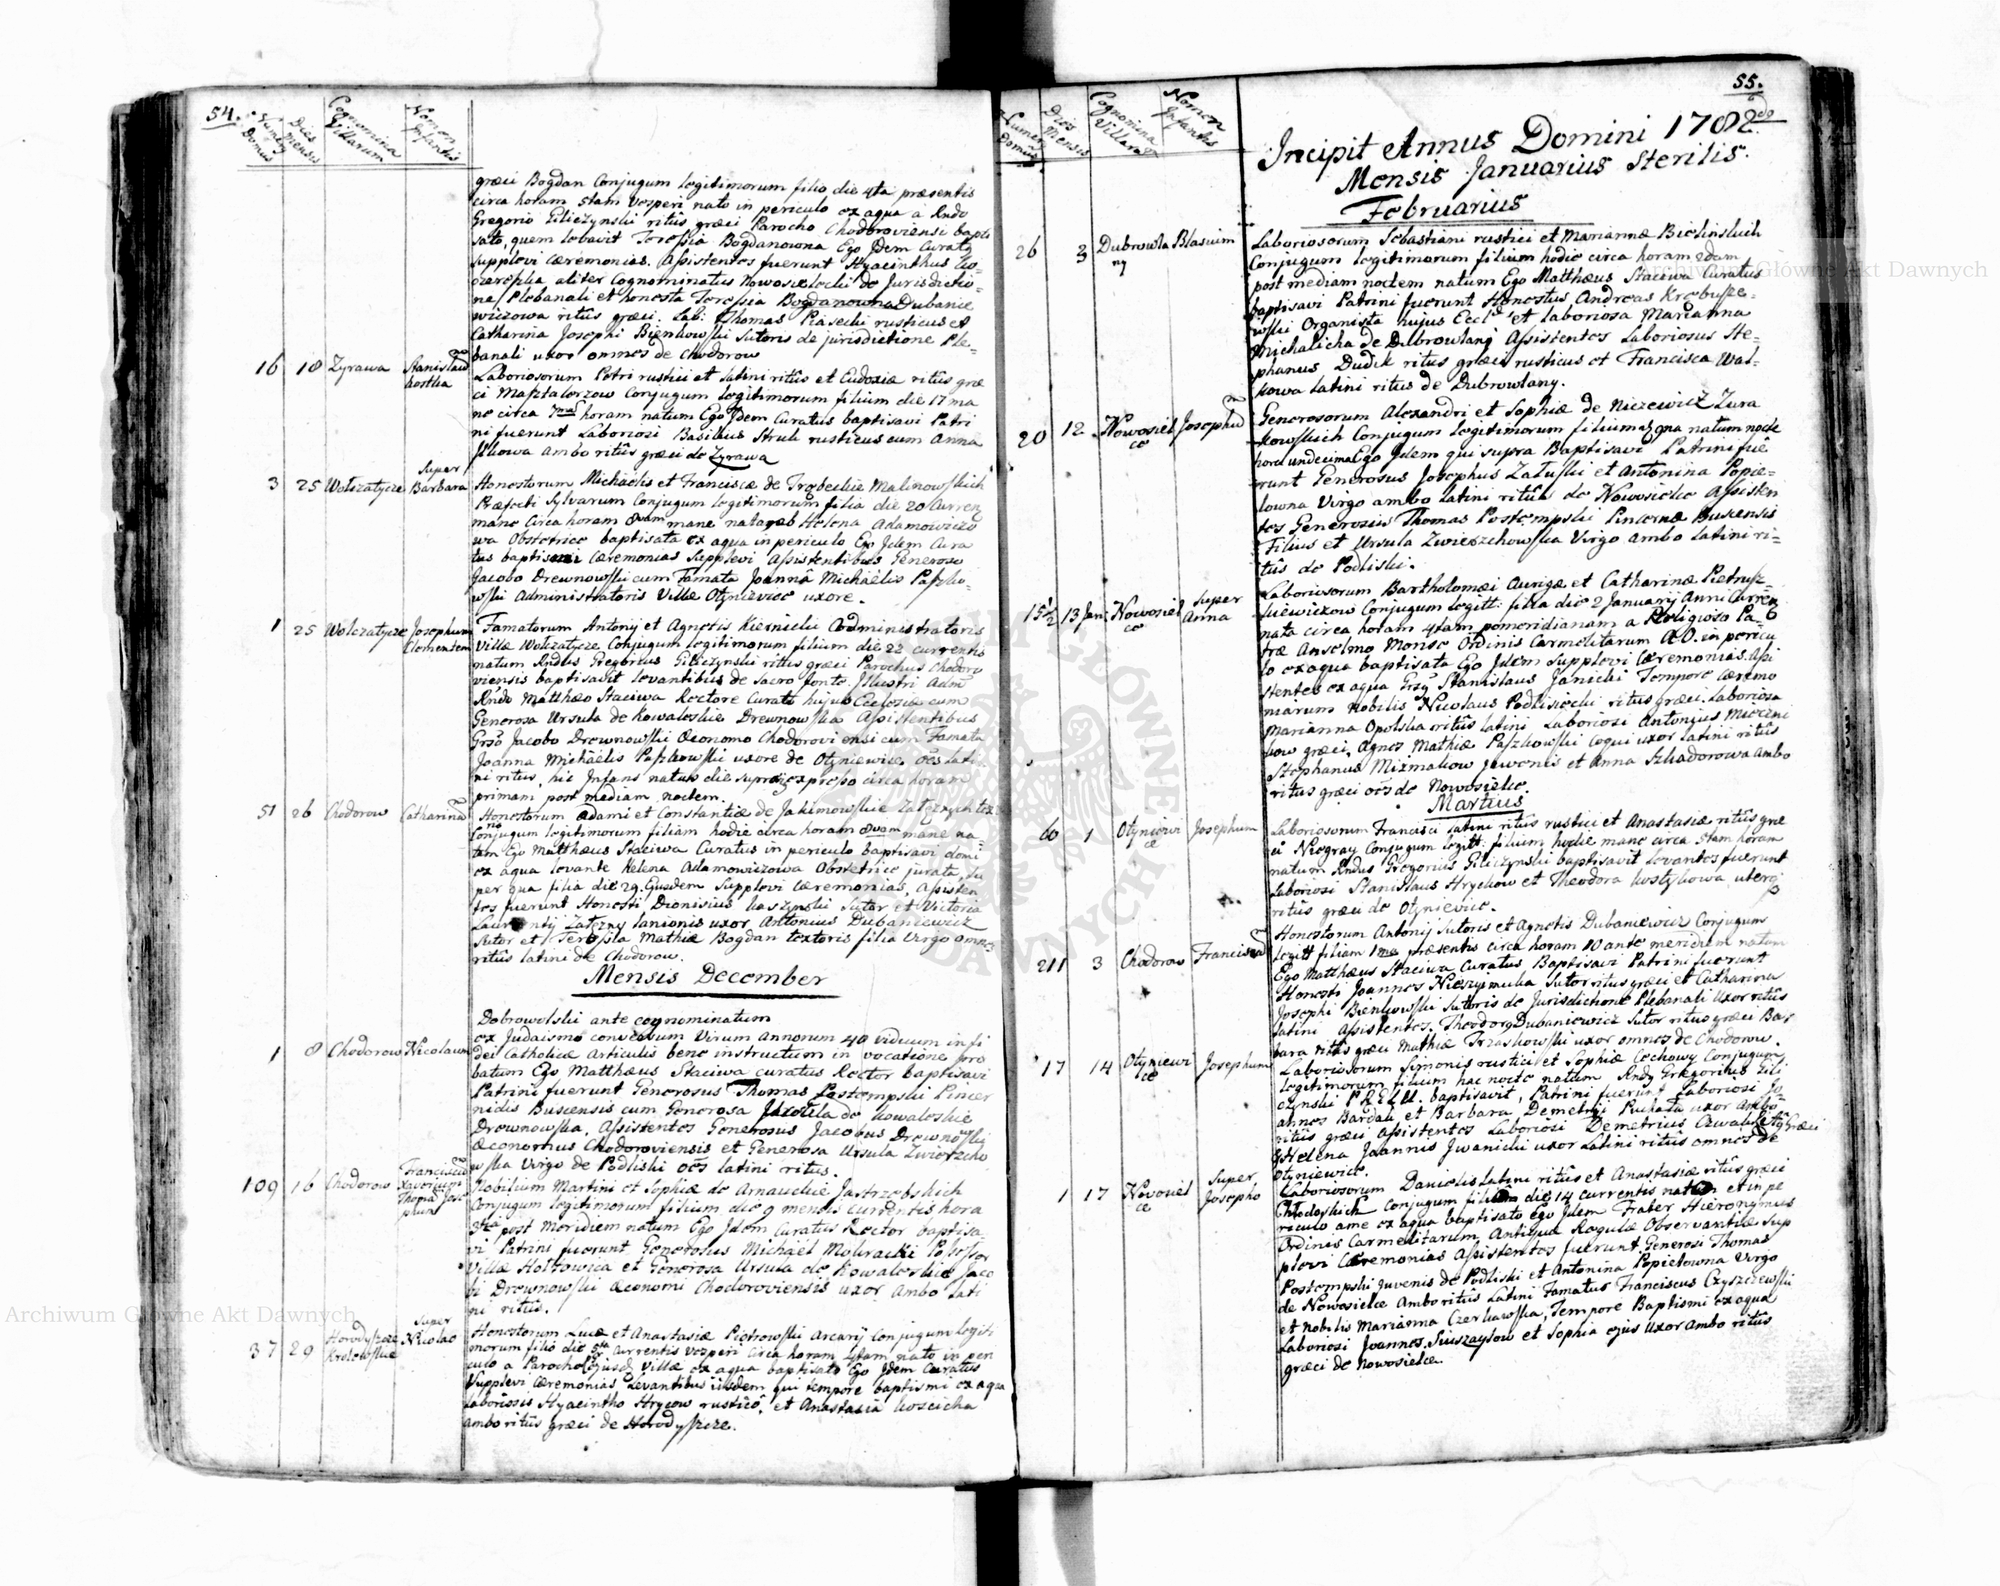 54.
Numerus Domus
Dies Mensis
Cognomina Villarum
Nomen Infantis
græci Bogdan Conjugum legitimorum filio die 4ta præsentis
circa horam 5tam Vesperi nato in periculo ex aqua a Rndo
Gregorio Giliczynski ritûs græci Parocho Chodoroviensi bapti
sato, quem levavit Teressia Bogdanowna Ego Idem Curatus
supplevi cæremonias. Assistentes fuerunt Hyacinthus
aliter Cognominatus Nowosielecki de Jurisdictio=
ne Plebanali et honesta Teressia Bogdanowna Dubanie
wiczowa ritûs græci. Lab: Thomas Piasecki rusticus et
Catharina Josephi Bienkowski Sutoris de jurisdictione Ple=
banali uxor omnes de Chodorow
16 18 Zyrawa Stanislaum Kostka
Laboriosorum Petri rustici et latini ritûs et Eudoxiæ ritûs græ
ci Masztalerzow Conjugum legitimorum filium die 17 ma
ne circa 7mam horam natum Ego Idem Curatus baptisavi Patri
ni fuerunt Laboriosi Basilius Struk rusticus cum Anna
Ilkowa ambo ritûs græci de Zyrawa
3 25 Wolczatycze Super Barbara
Honestorum Michaelis et Franciscæ de Malinowskich
Præfecti Sylvarum Conjugum legitimorum filia die 20 Curren
mane circa horam 8vam mane nata et ab Helena Adamowiczo
wa Obstetrice baptisata ex aqua in periculo Ego Idem Cura
tus baptismi Cæremonias Supplevi Assistentibus Generoso
Jacobo Drewnowski cum Famata Joanna Michaëlis Paszko=
wski Administratoris Villæ Otynievice uxore.
1 25 Wolczatycze Josephum Clementem
Famatorum Antonij et Agnetis Kiernicki Administratoris
Villæ Wolczatycze Conjugum legitimorum filium die 22 currentis
natum Rndus Gregorius Giliczynski ritûs græci Parochus Chodoro
viensis baptisavit levantibus de sacro fonte. Illustri Adm
Rndo Matthæo Staciwa Rectore Curato hujus Ecclesiæ cum
Generosa Ursula de Kowaleskie Drewnowska Assistentibus
Grso Jacobo Drewnowski Œconomo Chodoroviensi cum Famata
Joanna Michaëlis Paszkowski uxore de Otyniewice oēs lati
ni ritus, hic Infans natus die supra expresso circa horam
primam post mediam noctem.
51 26 Chodorow Catharinam
Honestorum Adami et Constantiæ de Jakimowskie Zatęznych
Conjugum legitimorum filiam hodie circa horam 8vam mane na
tam Ego Matthæus Staciwa Curatus in periculo baptisavi domi
ex aqua levante Helena Adamowiczowa Obstetrice jurata, Su
per qua filia die 29 Ejusdem Supplevi Cæremonias, Assisten
tes fuerunt Honesti Dionisius Kaszynski Sutor et Victoria
Laurentij Zatęzny lanionis uxor Antonius Dubaniewicz
Sutor et Teressia Mathiæ Bogdan textoris filia Virgo omnes
ritûs latini de Chodorow.
Mensis December
Dobrowolski ante cognominatum
1 8 Chodorow Nicolaum
ex Judaismo conversum Virum annorum 40 viduum in fi
dei Catholicæ Articulis bene instructum in vocatione pro
batum Ego Matthæus Staciwa curatus Rector baptisavi
Patrini fuerunt Generosus Thomas Postempski Pincer
nidis Buscensis cum Generosa Ursula de Kowaleskie
Drewnowska, Assistentes Generosus Jacobus Drewnowski
Œconomus Chodoroviensis et Generosa Ursula Zwierzcho
wska Virgo de Podliski oēs latini ritus.
109 16 Chodorow Franciscum Xaverium Thomā Josephum
Nobilium Martini et Sophiæ de Arnauckie Jastrzebskich
Conjugum legitimorum filium die 9 mensis currentis hora
3tia post meridiem natum Ego Idem Curatus Rector baptisa
vi Patrini fuerunt Generosus Michaël Mokracki Possessor
Villæ Holdowica et Generosa Ursula de Kowaleskie Jaco
bi Drewnowski Œconomi Chodoroviensis uxor Ambo lati
ni ritûs.
37 29 Horodyszcze Krolewskie Super Nicolao
Honestorum Lucæ et Anastasiæ Piotrowski Arcarij Conjugum legiti
morum filio die 5ta currentis vesperi circa horam 4tam nato in peri
culo a Parocho ejusdē Villæ ex aqua baptisato Ego Idem Curatus
Supplevi cæremonias Levantibus iisdem qui tempore baptismi ex aqua
Laboriosis Hyacintho Hrycow rustico, et Anastasia Koscicha
ambo ritûs græci de Horodyszcze.
55.
Numerus Domus
Dies Mensis
Cognomina Villarum
Nomen Infantis
Incipit Annus Domini 1782do
Mensis Januarius Sterilis.
Februarius
26 3 Dubrowlany Blasium
Laboriosorum Sebastiani rustici et Mariannæ Bielinskich
Conjugum legitimorum filium hodie circa horam 2dam
post mediam noctem natum Ego Matthæus Staciwa Curatus
baptisavi Patrini fuerunt Honestus Andreas Krebusze=
wski Organista hujus Eccl. et laboriosa Marianna
Michalicha de Dubrowlany Assistentes Laboriosus Ste=
phanus Dudek ritus græci rusticus et Francisca Wal=
kowa latini ritus de Dubrowlany.
20 12 Nowosielce Josephum
Generosorum Alexandri et Sophiæ de Niezewicz Zura
kowskich Conjugum legitimorum filium natum nocte
hora undecima Ego Idem qui supra Baptisavi Patrini fue
runt Generosus Josephus Zaluski et Antonina Popie=
lowna Virgo ambo latini ritûs de Nowosielce Assisten
tes Generosus Thomas Postempski Pincernæ Buscensis
Filius et Ursula Zwierzchowska Virgo ambo latini ri=
tûs de Podliski.
15½ 13 Jan Nowosielce Super Anna
Laboriosorum Bartholomæi Aurigæ et Catharinæ Pietrusz=
kiewiczow Conjugum legitt: filia die 2 Januarij Anni Curren
nata circa horam 4tam pomeridianam a Religioso Pa=
træ Anselmo Monse Ordinis Carmelitarum A.O. in pericu
lo ex aqua baptisata Ego Idem supplevi cæremonias. Assi
stentes ex aqua Grsus Stanislaus Janicki Tempore cæremo
niarum Nobilis Nicolaus Podlisiecki ritus græci. Laboriosa
Marianna Opolska ritûs latini Laboriosi Antonius
græci, Agnes Mathiæ Paszkowski coqui uxor latini ritûs
Stephanus Mixmakow juvenis et Anna Szkadorowa ambo
ritûs græci oēs de Nowosielce.
Martius
60 1 Otyniewice Josephum
Laboriosorum Francisci latini ritûs rustici et Anastasiæ ritûs græ
ci Niegray Conjugum legitt: filium hodie mane circa 5tam horam
natum Rndus Gregorius Giliczynski baptisavit levantes fuerunt
Laboriosi Stanislaus Hrychow et Theodora Kostykowa uterq
ritûs græci de Otynievice.
211 3 Chodorow Franciscam
Honestorum Antonij Sutoris et Agnetis Dubaniewicz Conjugum
legitt filiam 1ma præsentis circa horam 10 ante meridiem natam
Ego Matthæus Staciwa Curatus Baptisavi Patrini fuerunt
Honesti Joannes Nieszymulka Sutor ritus græci et Catharina
Josephi Bienkowski Sutoris de Jurisdictione Plebanali Uxor ritûs
latini Assistentes. Theodorus Dubaniewicz Sutor ritus græci Bar
bara ritûs græci Mathiæ Trzaskowski uxor omnes de Chodorow.
17 14 Otyniewice Josephum
Laboriosorum Simonis rustici et Sophiæ Cechowy Conjugum
legitimorum filium hac nocte natum Rndus Gregorius Gili
czynski baptisavit, Patrini fuerunt Laboriosi Jo=
annes Bardan et Barbara Demetrij Puchata uxor Ambo
ritûs græci Assistentes Laboriosi Demetrius ritûs Græci
et Helena Joannis Jwanicki uxor Latini ritûs omnes de
Otyniewice.
1 17 Novosielce Super Josepho
Laboriosorum Danielis latini ritûs et Anastasiæ ritûs græci
Conjugum filium die 14 currentis natum et in pe
riculo a me ex aqua baptisato Ego Idem Frater Hieronymus
Ordinis Carmelitarum Antiquæ Regulæ Observantiæ Sup
plevi Cæremonias Assistentes fuerunt Generosi Thomas
Postempski juvenis de Podliski et Antonina Popielowna Virgo
de Nowosielce Ambo ritûs Latini Famatus Franciscus Czyszczewski
et nobilis Marianna Czerkawska, Tempore Baptismi ex aqua
Laboriosi Joannes Suszaysow et Sophia ejus Uxor ambo ritûs
græci de Nowosielce.
Archiwum Główne Akt Dawnych
Archiwum Główne Akt Dawnych